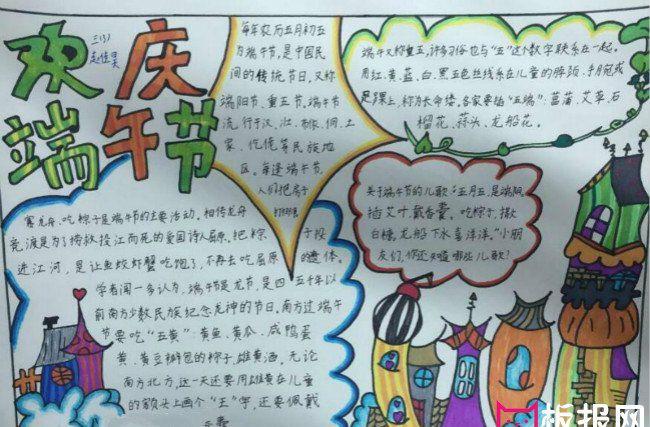 欢庆
端午节
三(3)
赵佳昊
每年农历五月初五
为端午节,是中国民
间的传统节日,又称
端阳节、重五节。端午节
流行于汉、壮、布依、侗、土
家、仡佬等民族地
区。每逢端午节,
人们把房子
打扫得
端午又称重五,许多习俗也与“五”这个数字联系在一起。
用红、黄、蓝、白、黑五色丝线系在儿童的脖颈、手腕或
是踝上,称为长命缕。各家要插“五端”:菖蒲、艾草、石
榴花、蒜头、龙船花。
关于端午节的儿歌:“五月五,是端阳。
插艾叶,戴香囊。吃粽子,撒
白糖,龙船下水喜洋洋。”小朋
友们,你还知道哪些儿歌?
赛龙舟、吃粽子是端午节的主要活动。相传龙舟
竞渡是为了捞救投江而死的爱国诗人屈原。把粽子投
进江河,是让鱼蛟虾蟹吃饱了,不再去吃屈原的遗体。
学者闻一多认为,端午节是龙节,是四、五千年以
前南方少数民族纪念龙神的节日。南方过端午
节要吃“五黄”:黄鱼、黄瓜、咸鸭蛋
黄、黄豆瓣包的粽子、雄黄酒。无论
南方北方,这一天还要用雄黄在儿童
的额头上画个“王”字,还要佩戴
香囊
板报网